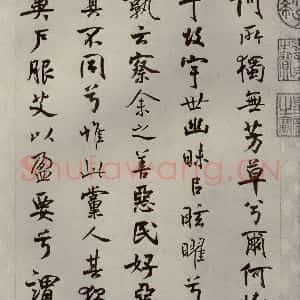 何所獨無芳草兮爾何
乎故宇世幽昧㠯眩曜兮
孰云察余之善惡民好惡
其不同兮惟此黨人其獨
異戶服艾以盈要兮謂
Shufawang.CN